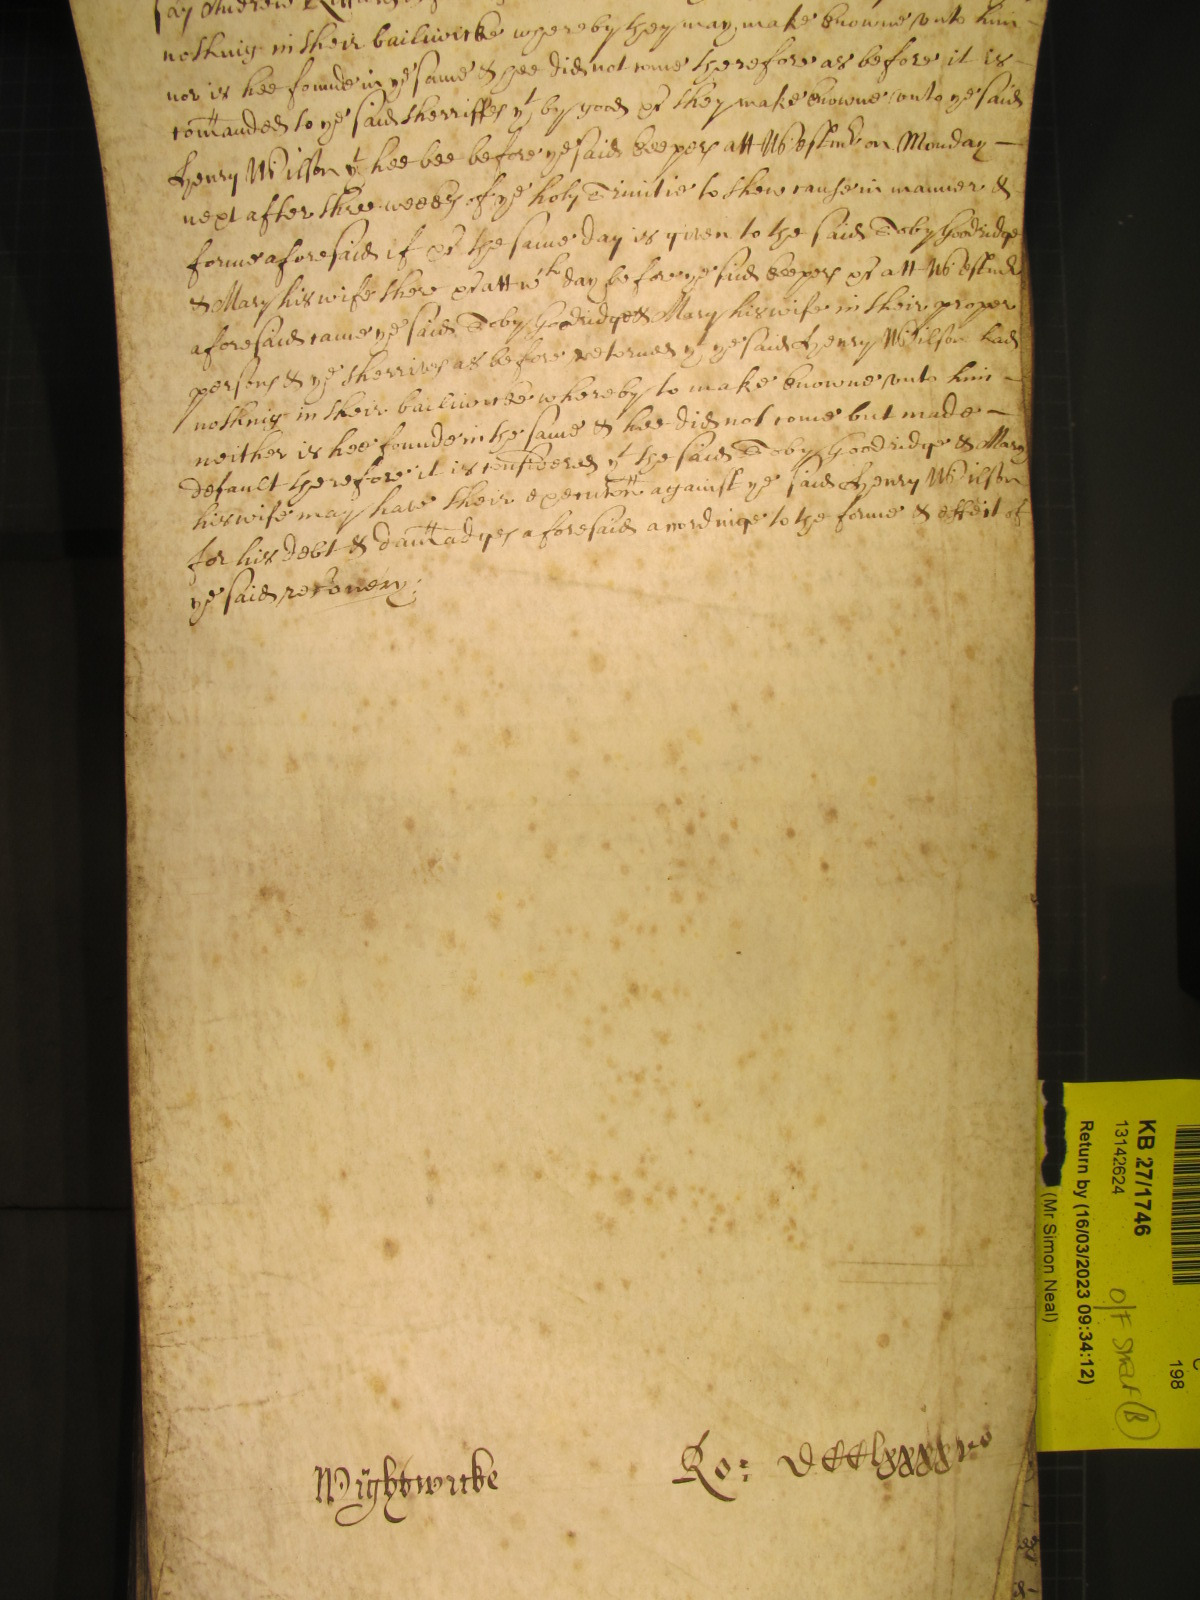 say Andrew
nothing in their bailiwicke whereby they may make knowne unto him –
nor is hee founde in ye same & hee did not come therefore as before it is –
comanded to ye said sherriffes yt by good &c they make knowne unto ye said
Henry Wilson yt hee bee before ye said keepers att Westmr on Monday –
next after three weekes of ye holy Trinitie to shew cause in manner &
forme aforesaid if &c the same day is given to the said Toby Goodridge
& Mary his wife there &c att wch day before ye said keepers &c att Westmr
aforesaid came ye said Toby Goodridge & Mary his wife in their proper
persons & ye sherrives as before retorned yt ye said Henry Wilson had
nothing in their bailiwicke whereby to make knowne unto him –
neither is hee founde in the same & hee did not come but made –
default therefore it is considered yt the said Toby Goodridge & Mary
his wife may have their execucon against ye said Henry Wilson
for his debt & damadges aforesaid accordinge to the forme & effect of
ye said recovery.
Wightwicke
Ro: DCClxxxxvo
KB 27/1746
13142624
Return by (16/03/2023 09:34:12)
(Mr Simon Neal)
O/F Smar (B)
198